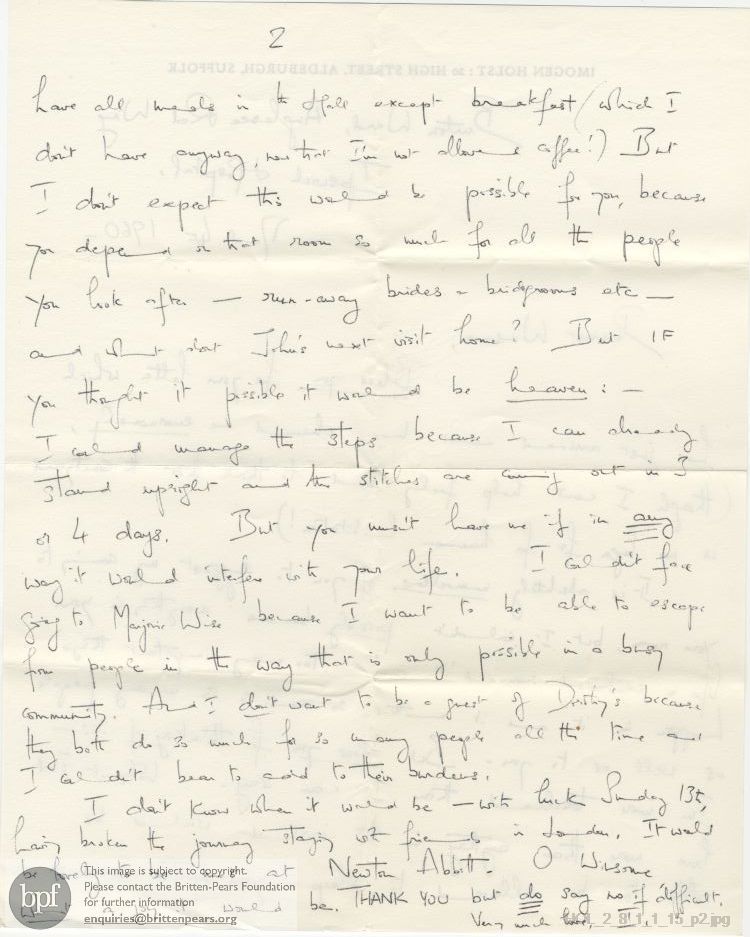 2
have all meals in the Hall except breakfast (which I
don't have anyway, now that I'm not allowed coffee!) But
I don't expect this would be possible for you, because
you depend on that room so much for all the people
you look after — run-away brides & bridegrooms etc —
and what about John's next visit home? But IF
you thought it possible it would be heaven: —
I could manage the steps because I can already
stand upright and the stitches are coming out in 3
or 4 days. But you mustn't have me if in any
way it would interfere with your life. I couldn't face
going to Marjorie Wise because I want to be able to escape
from people in the way that is only possible in a busy
community. And I don't want to be a guest of Dorothy's because
they both do so much for so many people all the time and
I couldn't bear to add to their burdens.
I don't know when it would be — with luck Sunday 13th,
having broken the journey staying with friends in London. It would
be at Newton Abbott. O Winsome
it would be. THANK YOU but do say no if difficult.
Very much love, I.
IMOGEN HOLST : 10 HIGH STREET, ALDEBURGH, SUFFOLK
1960
bpf
This image is subject to copyright.
Please contact the Britten-Pears Foundation
for further information
enquiries@brittenpears.org
2_8_1_1_15_p2.jpg